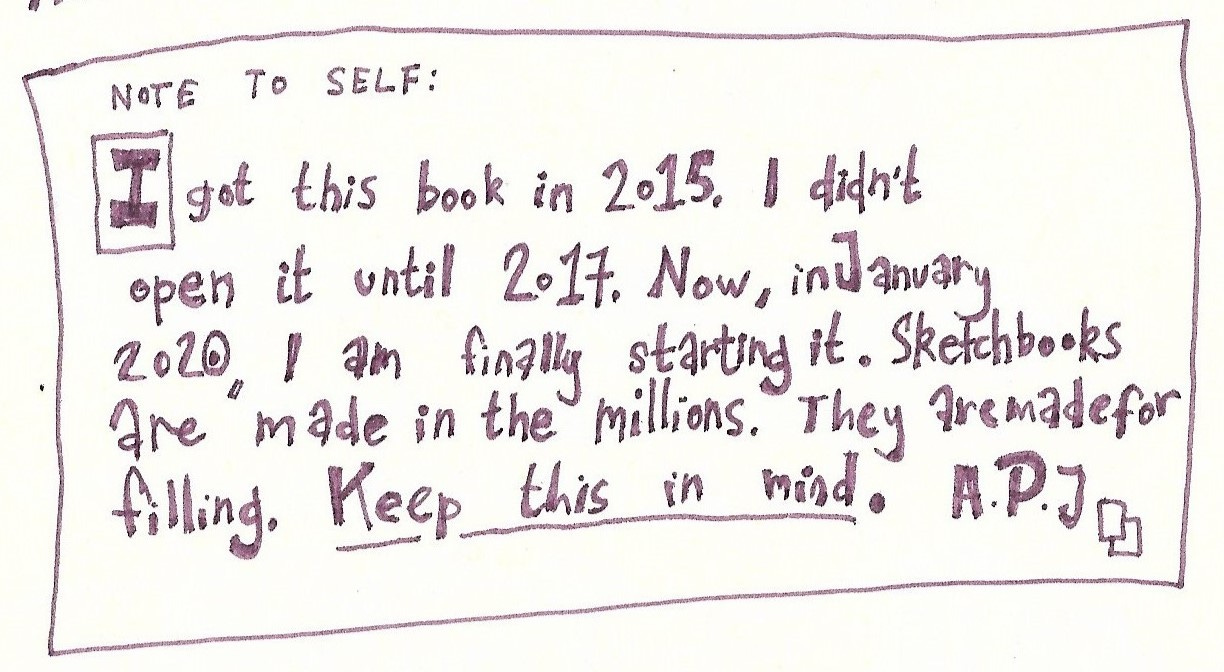 NOTE TO SELF:
I got this book in 2015. I didn't
open it until 2017. Now, in January
2020, I am finally starting it. Sketchbooks
are made in the millions. They are made for
filling. Keep this in mind. A.P.J